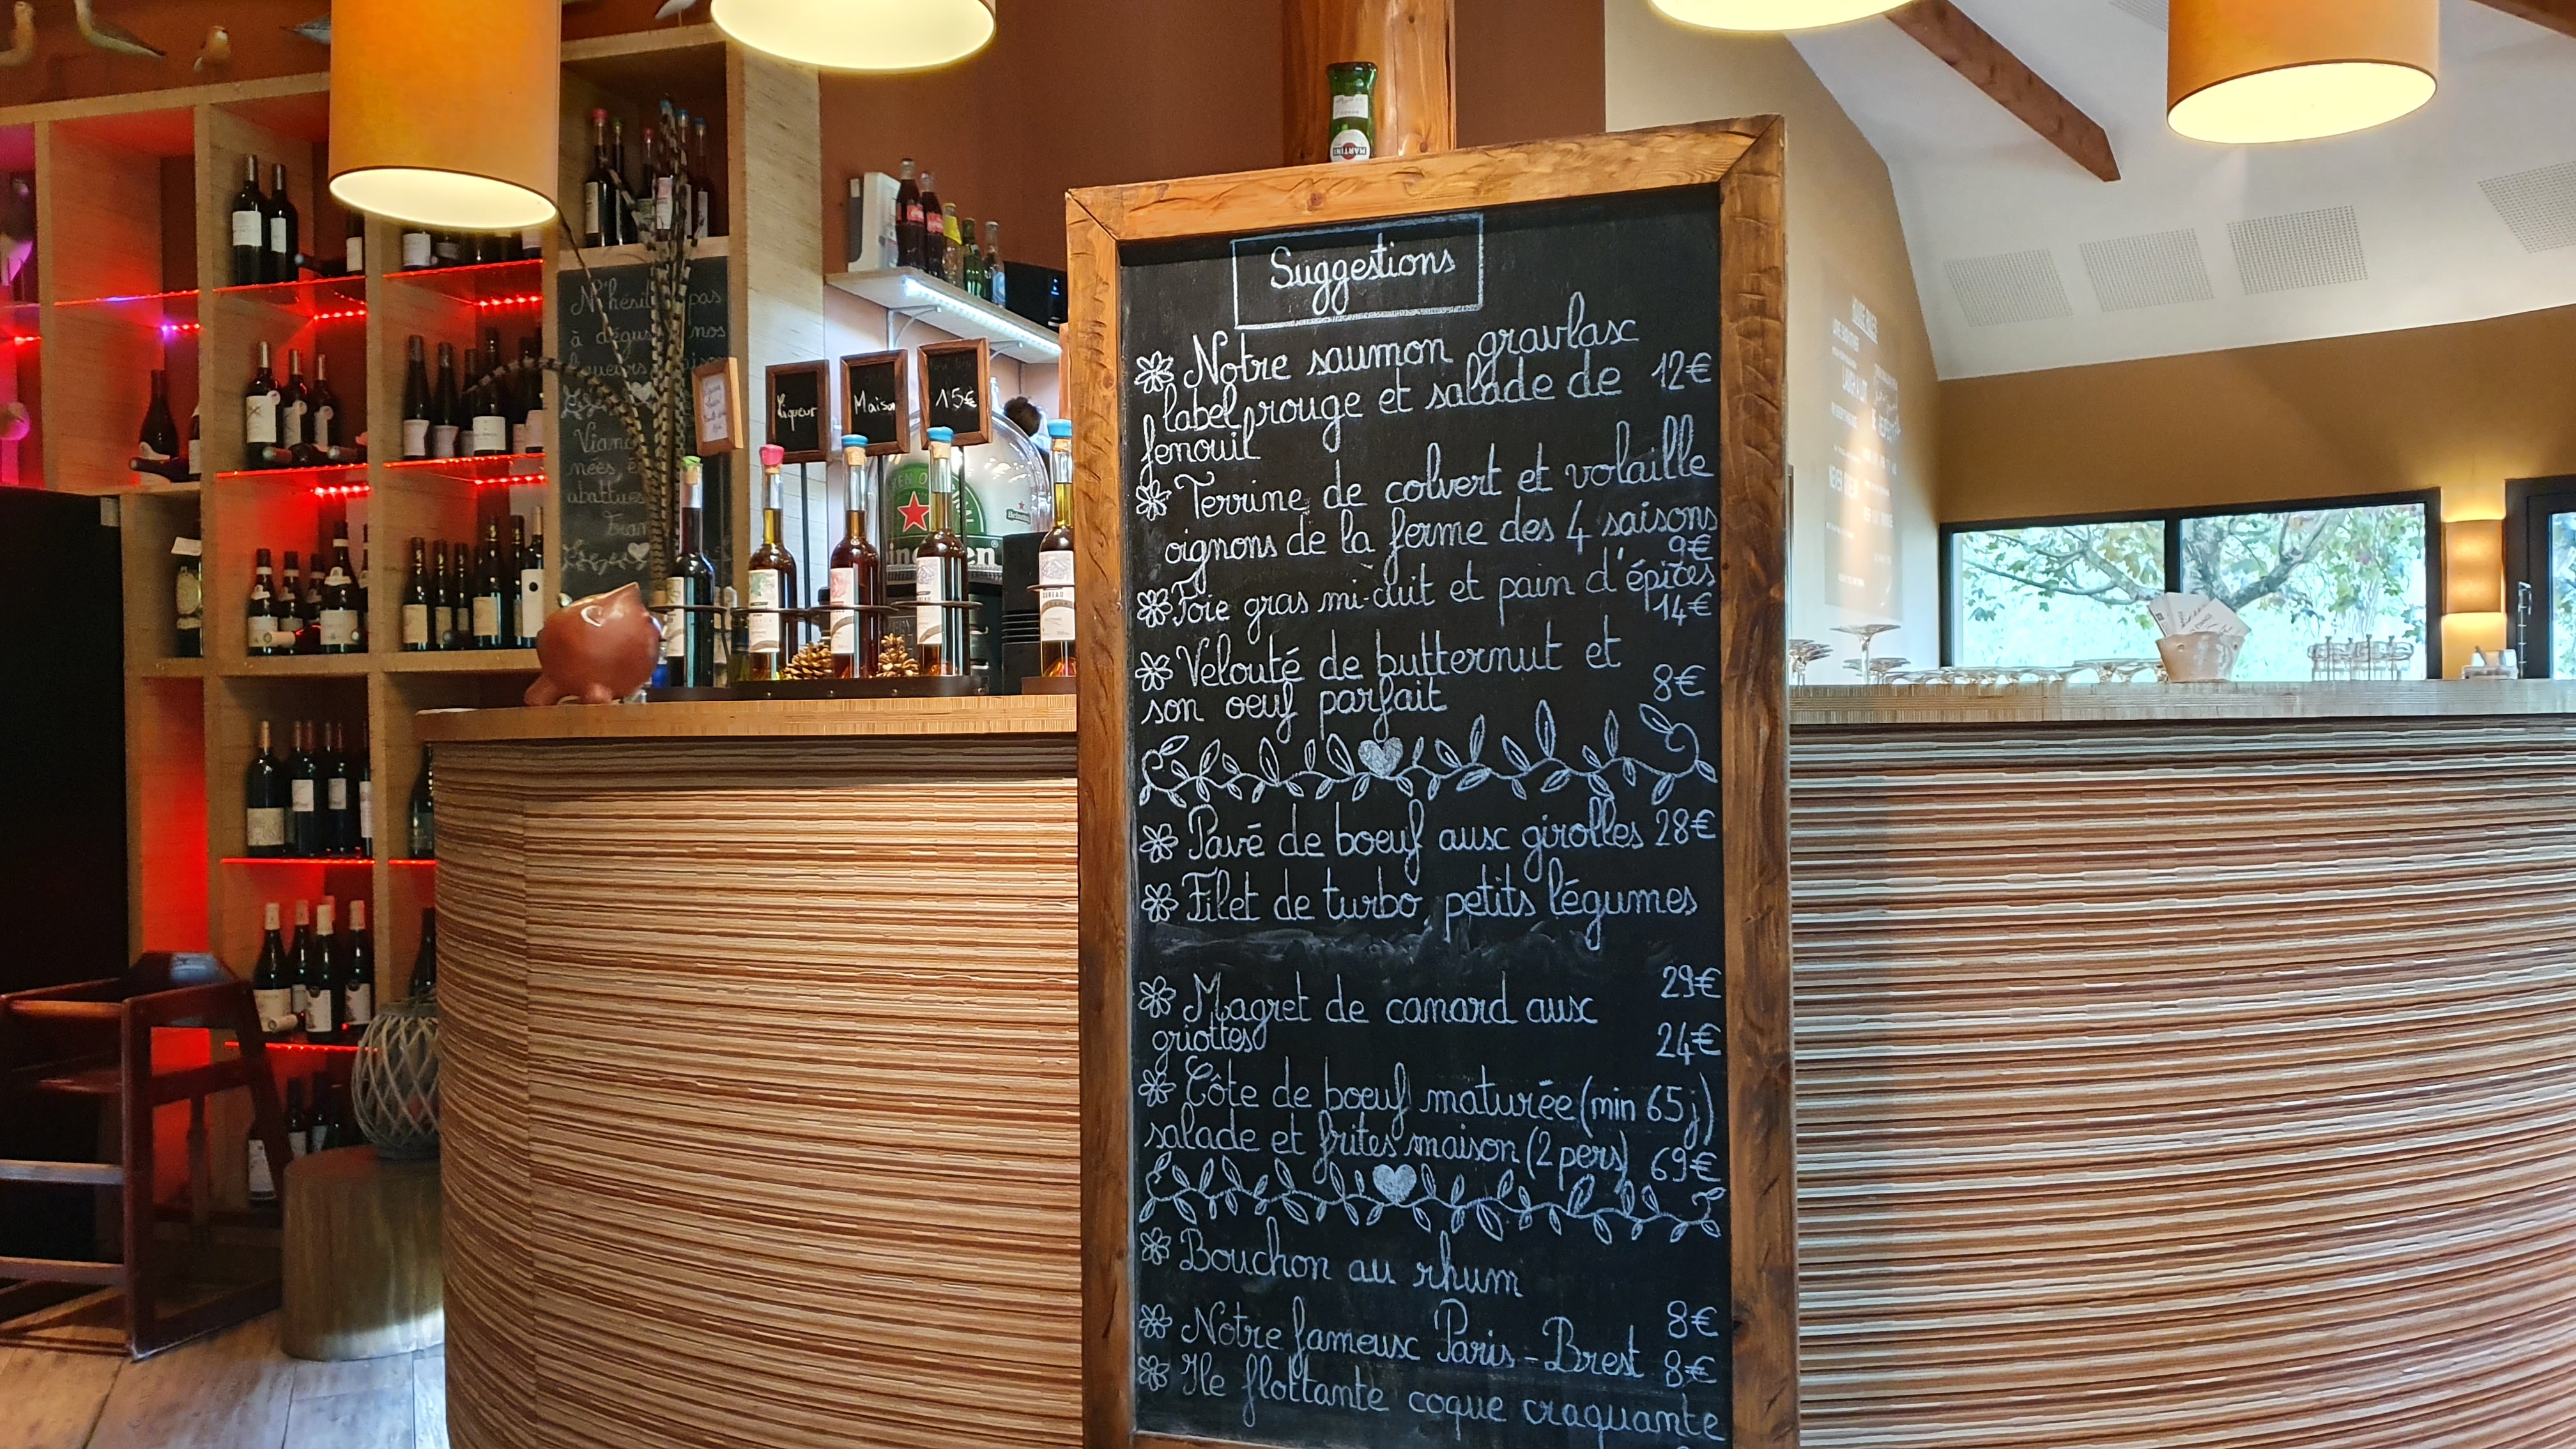 Suggestions
Notre saumon gravlax
label rouge et salade de 12€
fenouil
Terrine de colvert et volaille
oignons de la ferme des 4 saisons
9€
Foie gras mi-cuit et pain d'épices
14€
Velouté de butternut et
son oeuf parfait 8€
Pavé de boeuf aux girolles 28€
Filet de turbo, petits légumes
29€
Magret de canard aux
griottes 24€
Côte de boeuf maturée (min 65j)
salade et frites maison (2 pers) 69€
Bouchon au rhum
8€
Notre fameux Paris-Brest 8€
Ile flottante coque craquante
N'hésit pas
à dégus nos
Vian
nées, e
abattues
Fran
Liqueur
Maison
15€
Heineken
MARTINI